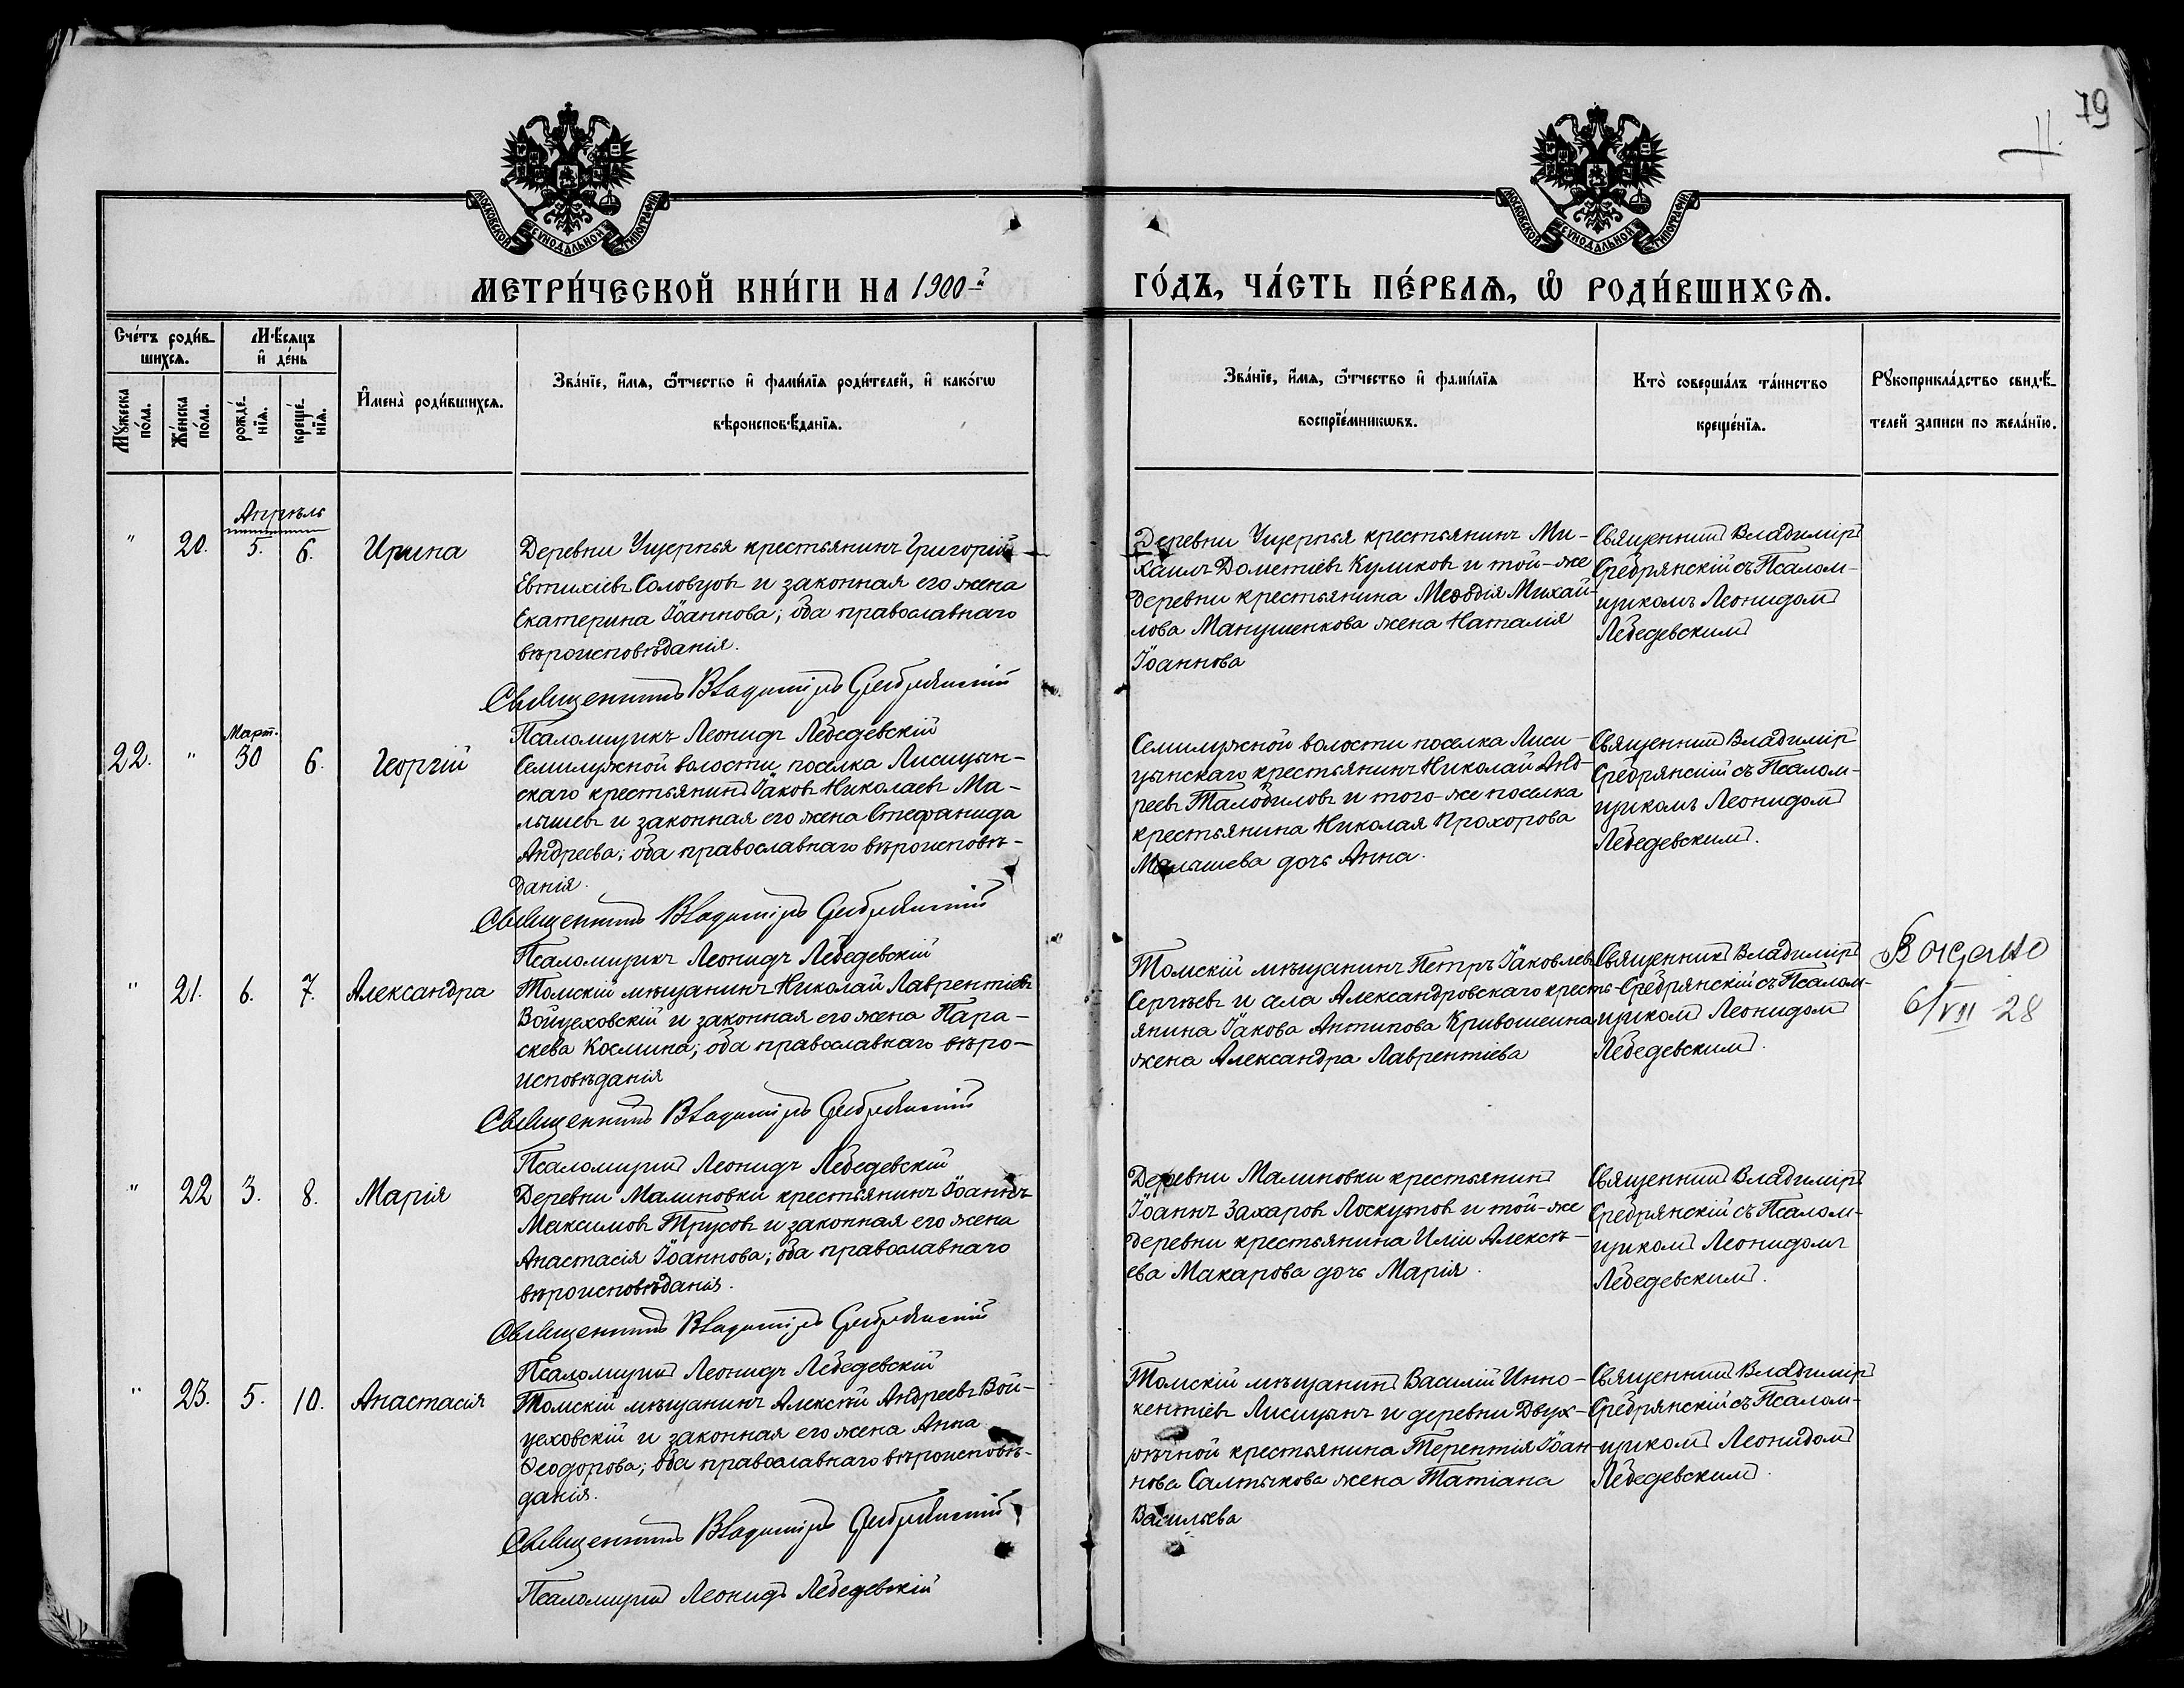 79
11.
МОСКОВСКОЙ СУНОДАЛЬНОЙ ТИПОГРАФІИ
МОСКОВСКОЙ СУНОДАЛЬНОЙ ТИПОГРАФІИ
МЕТРИ́ЧЕСКОЙ КНИ́ГИ НА 1900-й ГО́ДЪ, ЧА́СТЬ ПЕ́РВАѦ, Ѡ҆ РОДИ́ВШИХСѦ.
Сче́тъ роди́в-
шихсѧ.
Мꙋ́жеска по́ла.
Же́нска по́ла.
Мѣ́сяцъ
и҆ де́нь
рожде́-
нїѧ.
креще́-
нїѧ.
И҆мена̀ роди́вшихсѧ.
Зва́нїе, и҆́мѧ, ѻ҆́тчество и҆ фами́лїѧ роди́телей, и҆ како́гѡ
вѣроисповѣ́данїѧ.
Зва́нїе, и҆́мѧ, ѻ҆́тчество и҆ фами́лїѧ
воспрїе́мникѡвъ.
Кто̀ соверша́лъ та́инство
креще́нїѧ.
Рꙋкоприкла́дство свидѣ́-
телей записи по жела́нїю.
Апрѣль
" 20. 5. 6. Ирина
Деревни Ущерпья крестьянинъ Григорій
Евтихіевъ Соловцовъ и законная его жена
Екатерина Іоаннова; оба православнаго
вѣроисповѣданія.
Священникъ Владиміръ Сребрянскій
Псаломщикъ Леонидъ Лебедевскій
Деревни Ущерпья крестьянинъ Ми-
хаилъ Дометіевъ Куликовъ и той-же
деревни крестьянина Меѳодія Михай-
лова Манушенкова жена Наталія
Іоаннова
Священникъ Владиміръ
Сребрянскій съ Псалом-
щикомъ Леонидомъ
Лебедевскимъ
Март.
22. " 30 6. Георгій
Семилужной волости поселка Лисицын-
скаго крестьянинъ Іаковъ Николаевъ Ма-
лышевъ и законная его жена Стефанида
Андреева; оба православнаго вѣроисповѣ-
данія.
Священникъ Владиміръ Сребрянскій
Псаломщикъ Леонидъ Лебедевскій
Семилужной волости поселка Лиси-
цынскаго крестьянинъ Николай Анд-
реевъ Талобиловъ и того-же поселка
крестьянина Николая Прохорова
Малышева дочь Анна.
Священникъ Владиміръ
Сребрянскій съ Псалом-
щикомъ Леонидомъ
Лебедевскимъ.
" 21. 6. 7. Александра
Томскій мѣщанинъ Николай Лаврентіевъ
Войцеховскій и законная его жена Пара-
скева Космина; оба православнаго вѣро-
исповѣданія
Священникъ Владиміръ Сребрянскій
Псаломщикъ Леонидъ Лебедевскій
Томскій мѣщанинъ Петръ Іаковлевъ
Сергѣевъ и села Александровскаго кресть-
янина Іакова Антипова Кривошеина
жена Александра Лаврентіева
Священникъ Владиміръ
Сребрянскій съ Псалом-
щикомъ Леонидомъ
Лебедевскимъ.
6/VII 28
" 22 3. 8. Марія
Деревни Малиновки крестьянинъ Іоаннъ
Максимовъ Трусовъ и законная его жена
Анастасія Іоаннова; оба православнаго
вѣроисповѣданія.
Священникъ Владиміръ Сребрянскій
Псаломщикъ Леонидъ Лебедевскій
Деревни Малиновки крестьянинъ
Іоаннъ Захаровъ Лоскутовъ и той-же
деревни крестьянина Иліи Алексѣ-
ева Макарова дочь Марія.
Священникъ Владиміръ
Сребрянскій съ Псалом-
щикомъ Леонидомъ
Лебедевскимъ.
" 23. 5. 10. Анастасія
Томскій мѣщанинъ Алексѣй Андреевъ Вой-
цеховскій и законная его жена Анна
Ѳеодорова; оба православнаго вѣроисповѣ-
данія.
Священникъ Владиміръ Сребрянскій
Псаломщикъ Леонидъ Лебедевскій
Томскій мѣщанинъ Василій Инно-
кентіевъ Лисицынъ и деревни Двух-
рѣчной крестьянина Терентія Іоан-
нова Салтыкова жена Татіана
Васильева
Священникъ Владиміръ
Сребрянскій съ Псалом-
щикомъ Леонидомъ
Лебедевскимъ.